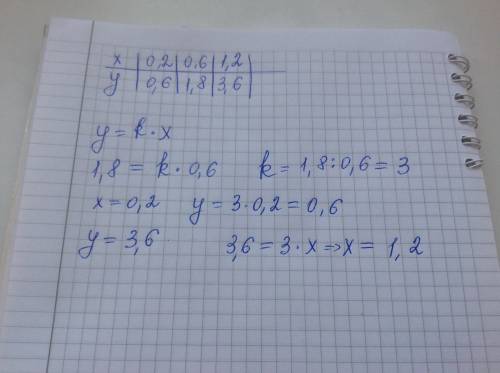 x | 0,2 | 0,6 | 1,2 |
y | 0,6 | 1,8 | 3,6 |
y = k · x
1,8 = k · 0,6 k = 1,8 : 0,6 = 3
x = 0,2 y = 3 · 0,2 = 0,6
y = 3,6 3,6 = 3 · x ⇒ x = 1,2